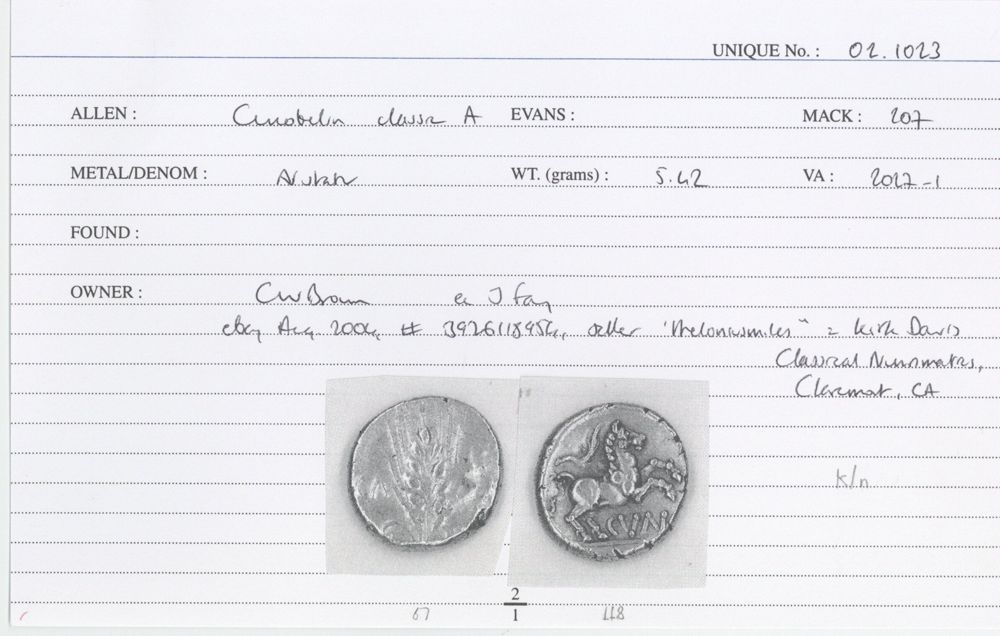 UNIQUE No. : 02.1023
ALLEN : Cunobelin classic A EVANS : MACK : 207
METAL/DENOM : AV stater WT. (grams) : 5.42 VA : 2027-1
FOUND :
OWNER : CW Brown ex J Fay
ebay Aug 2004, # 3926118954, seller "theloniusmiles" = Kirk Davis
Classical Numismatics,
Claremont, CA
CVN
k/n
2
1
67 118